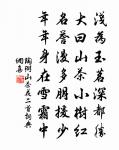 浅為玉茗深都勝
大曰山茶小樹紅
名譽漫多朋援少
年年身在雪霜中
陶弼山茶二首詞典
網